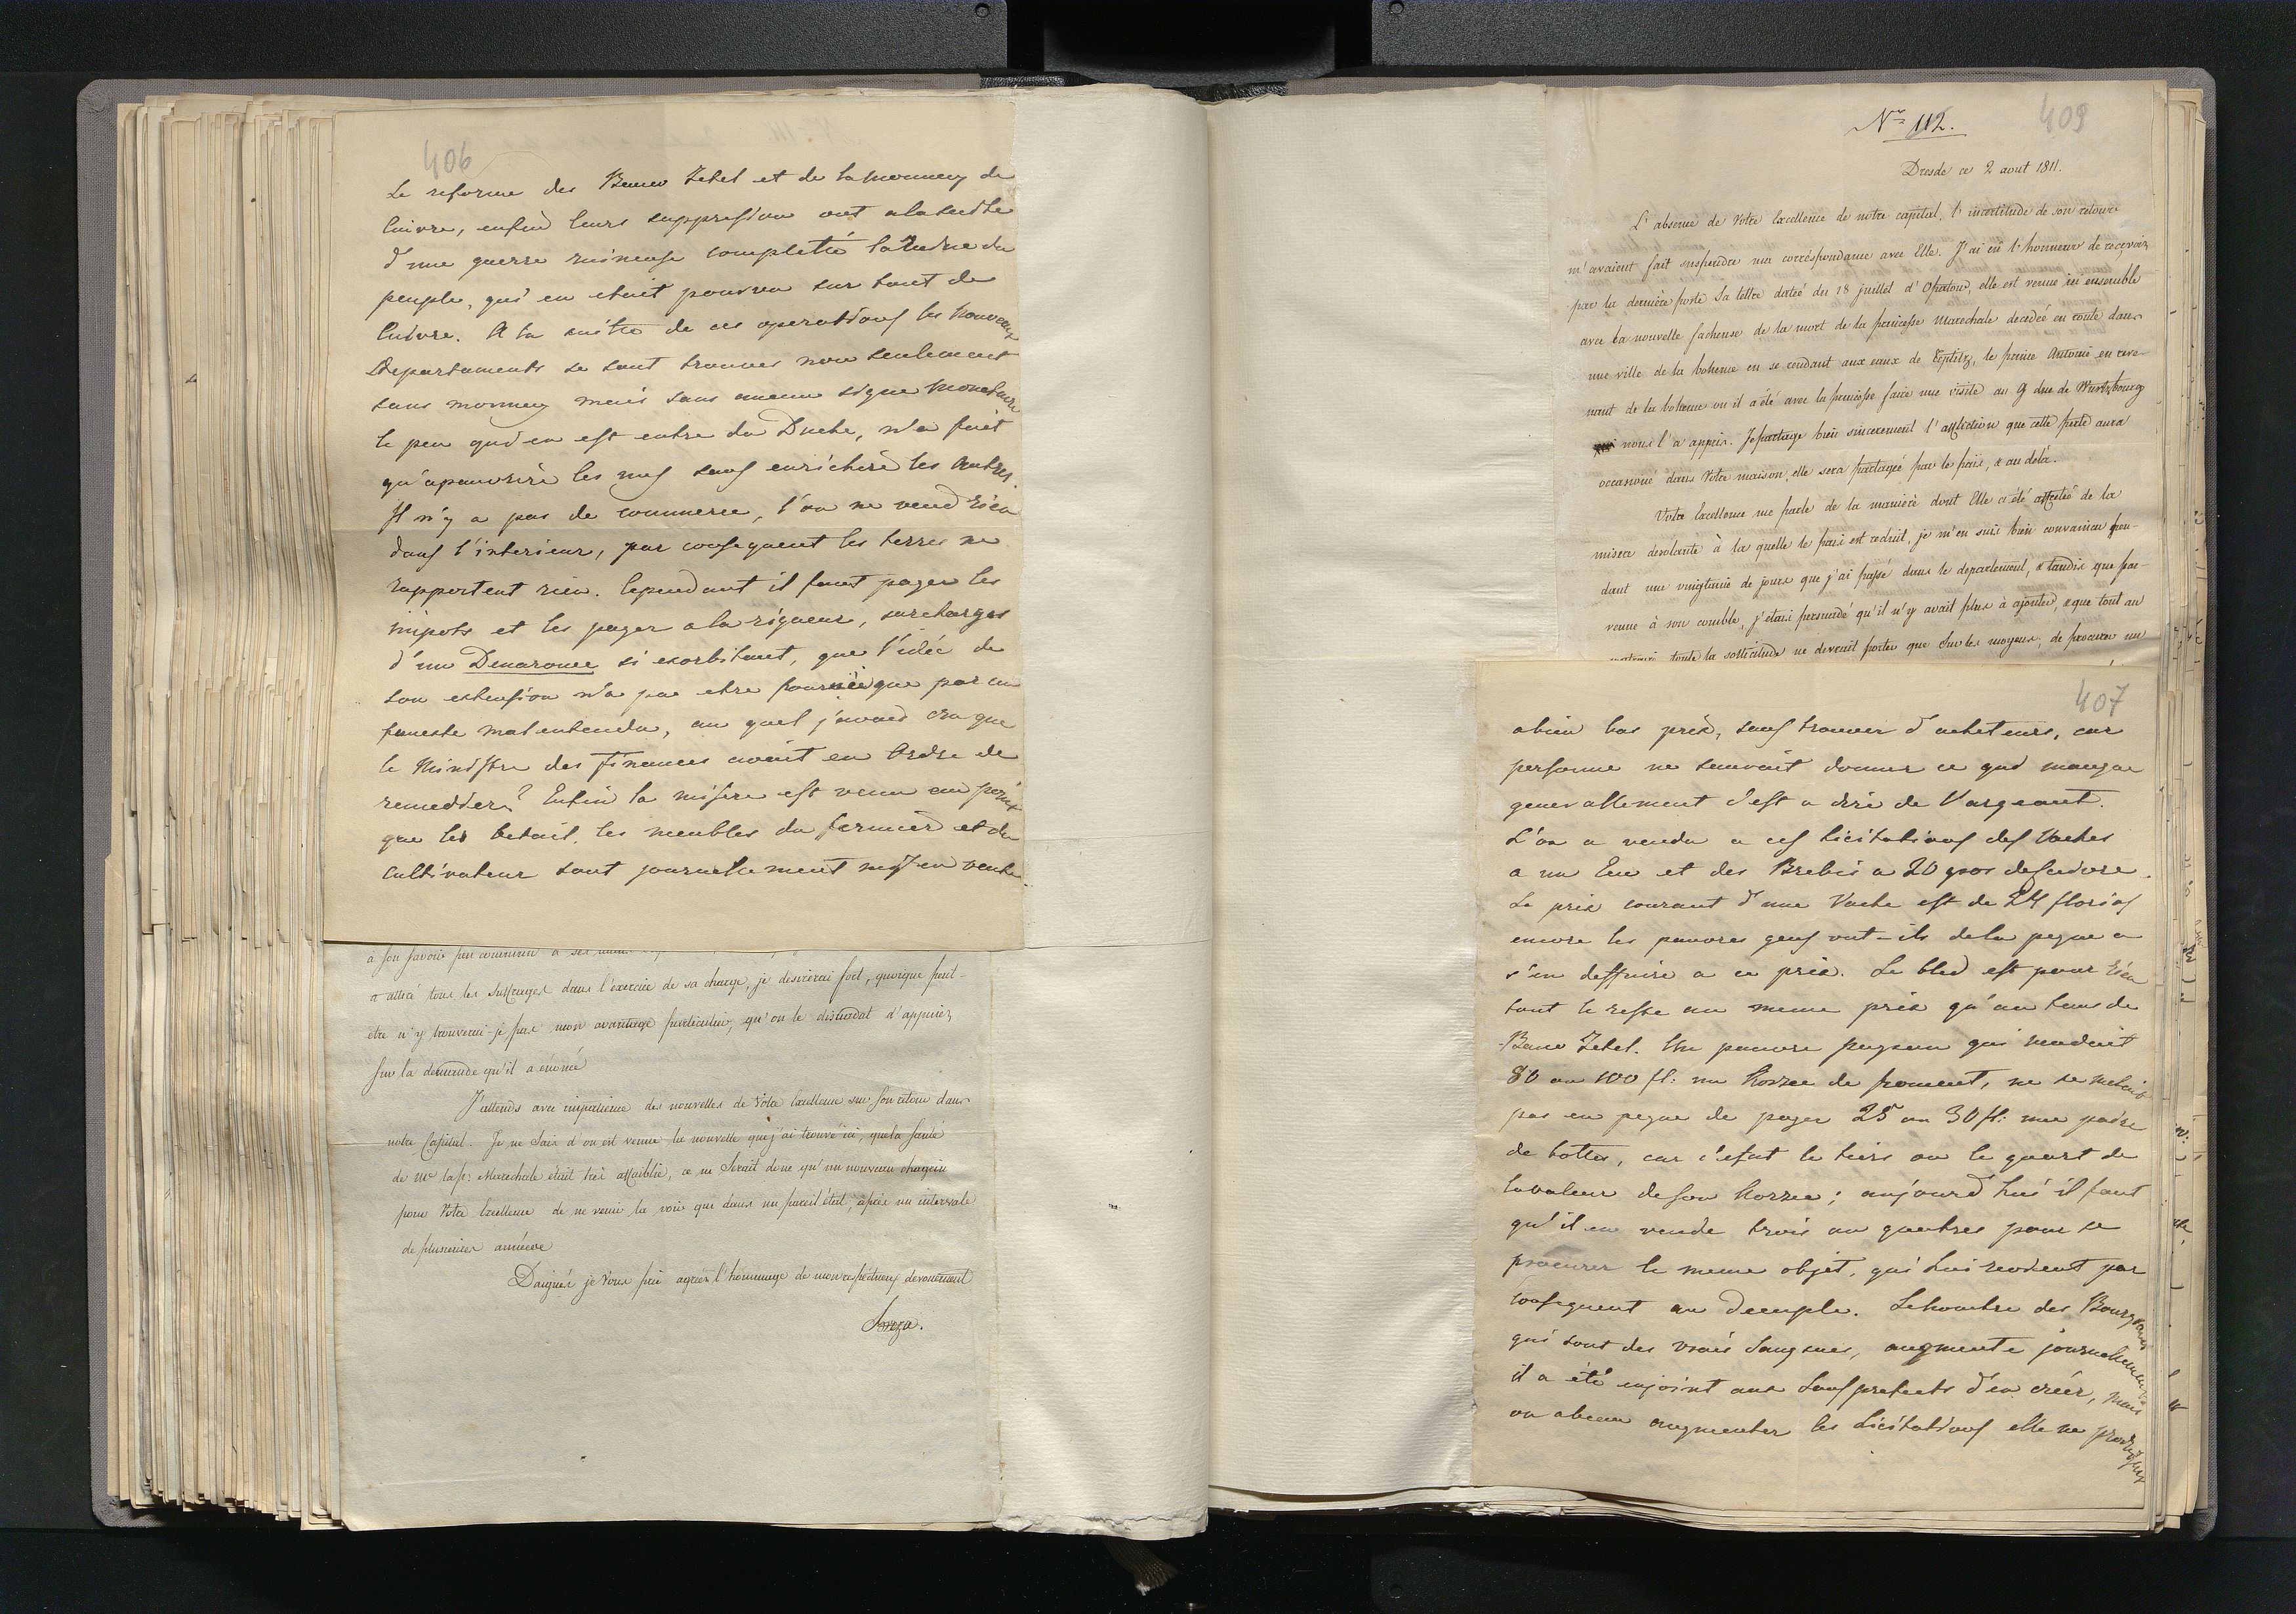 406
Le reforme des Banco Zetel et de la monney de
Cuivre, enfin leurs suppression ont a la suitte
d'une guerre ruineuse completté la ruine du
peuple, qui en etoit pourvu sur tout de
Cuivre. A la suitte de ces operations les nouveaux
Departements se sont trouves non seulement
sans monney mais sans aucun signe monetaire
le peu qui en est entre du Duché, n'a fait
qu'apauvrire les uns sans enrichire les autres.
Il n'y a pas de commerce, l'on ne vend rien
dans l'interieur, par consequent les terres ne
rapportent rien. Cependant il faut payer les
impots et les payer a la rigueur, surcharges
d'un Denaronee si exorbitant, que l'idée de
son extension n'a pu etre fournie que par un
funeste malentendu, au quel j'avais cru que
le Ministre des finances avait eu Ordre de
remedder? Enfin la misere est venu au point
que les betail, les meubles du fermier et du
Cultivateur sont journellement mis en vente
à son savoir peu commun a
a attiré tous les suffrages dans l'exercice de sa charge, je desirerai fort, quoique peut-
etre n'y trouverai-je pas mon avantage particulier, qu'on le d'appuiez
sur la demande qu'il a énoncé
J'attends avec impatience des nouvelles de Votre Excellence sur son retour dans
notre Capital. Je ne sais d'ou est venue la nouvelle que j'ai trouvé ici, que la santé
de Me la p: Marechale était très affaiblie, ce ne serait donc qu'un nouveau chagrin
pour Votre Excellence de ne venir la voir que dans un pareil état, après un intervale
de plusieures années
Daignez je Vous prie agréer l'hommage de mon respectueux devouement
409
Nro 112.
Dresde ce 2 aout 1811.
L'absence de Votre Excellence de notre capital, l'incertitude de son retour
m'avaient fait suspendre ma corréspondance avec Elle. J'ai eu l'honneur de reçevoir
par la dernière poste Sa lettre datée du 18 juillet d'Opatow, elle est venue ici ensemble
avec la nouvelle facheuse de la mort de la princesse Marechale decedée en route dans
une ville de la boheme en se rendant aux eaux de Teplitz, le prince Antoine en reve-
nant de la boheme ou il a été avec la princesse faire une visite au G duc de Wurtzbourg
nous l'a appris. Je partage bien sincerement l'affliction que cette perte aura
occasioné dans Votre maison, elle sera partagée par le païs, & au delà.
Votre Excellence me parle de la manière dont Elle a été affectée de la
misere desolante à la quelle le païs est reduit, je m'en suis bien convaincu pen-
dant une vingtaine de jours que j'ai passé dans le departement, & tandis que par-
venue à son comble, j'étais persuadé qu'il n'y avait plus à ajouter, & que tout au
toute la sollicitude ne devrait porter que sur les moyens, de procurer un
407
a bien bas prix, sans trouver d'acheteurs, car
personne ne sauroit donner ce qui manque
generallement c'est a dire de l'argeant.
L'on a vendu a ces licitations des Vaches
a un Ecu et des Brebis a 20 gros de Cuivre.
Le prix courant d'une Vache est de 24 florins
encore les pauvres gens ont-ils de la peyne a
s'en deffaire a ce prix. Le bled est pour rien
tout le reste au meme prix qu'au tems de
Banco Zetel. Un pauvre paysan qui vendait
80 ou 100 fl: un Korzec de froment, ne se metoit
pas en peyne de payer 25 ou 30 fl: une paire
de bottes, car c'etait le tiers ou le quart de
la valeur de son Korzec; aujourd'hui il faut
qu'il en vende trois ou quatres pour se
procurer le meme objet, qui lui revient par
consequent au decuple. Le nombre des Bourgeois
qui sont des vrais sangsues, augmente journellement
il a été enjoint aux Sousprefects d'en créer, mais
on a beau augmenter les Licitations elle ne produisent